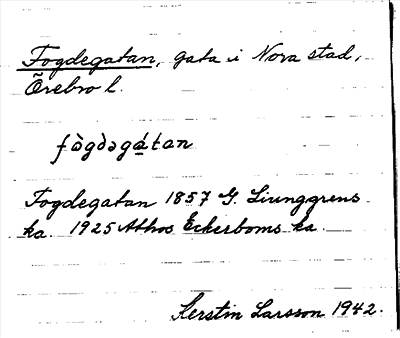 Fogdegatan, gata i Nora stad,
Örebro l.
fògdəgátan
Fogdegatan 1857 G. Ljunggrens
ka. 1925 Athos Eckerboms ka.
Kerstin Larsson 1942.